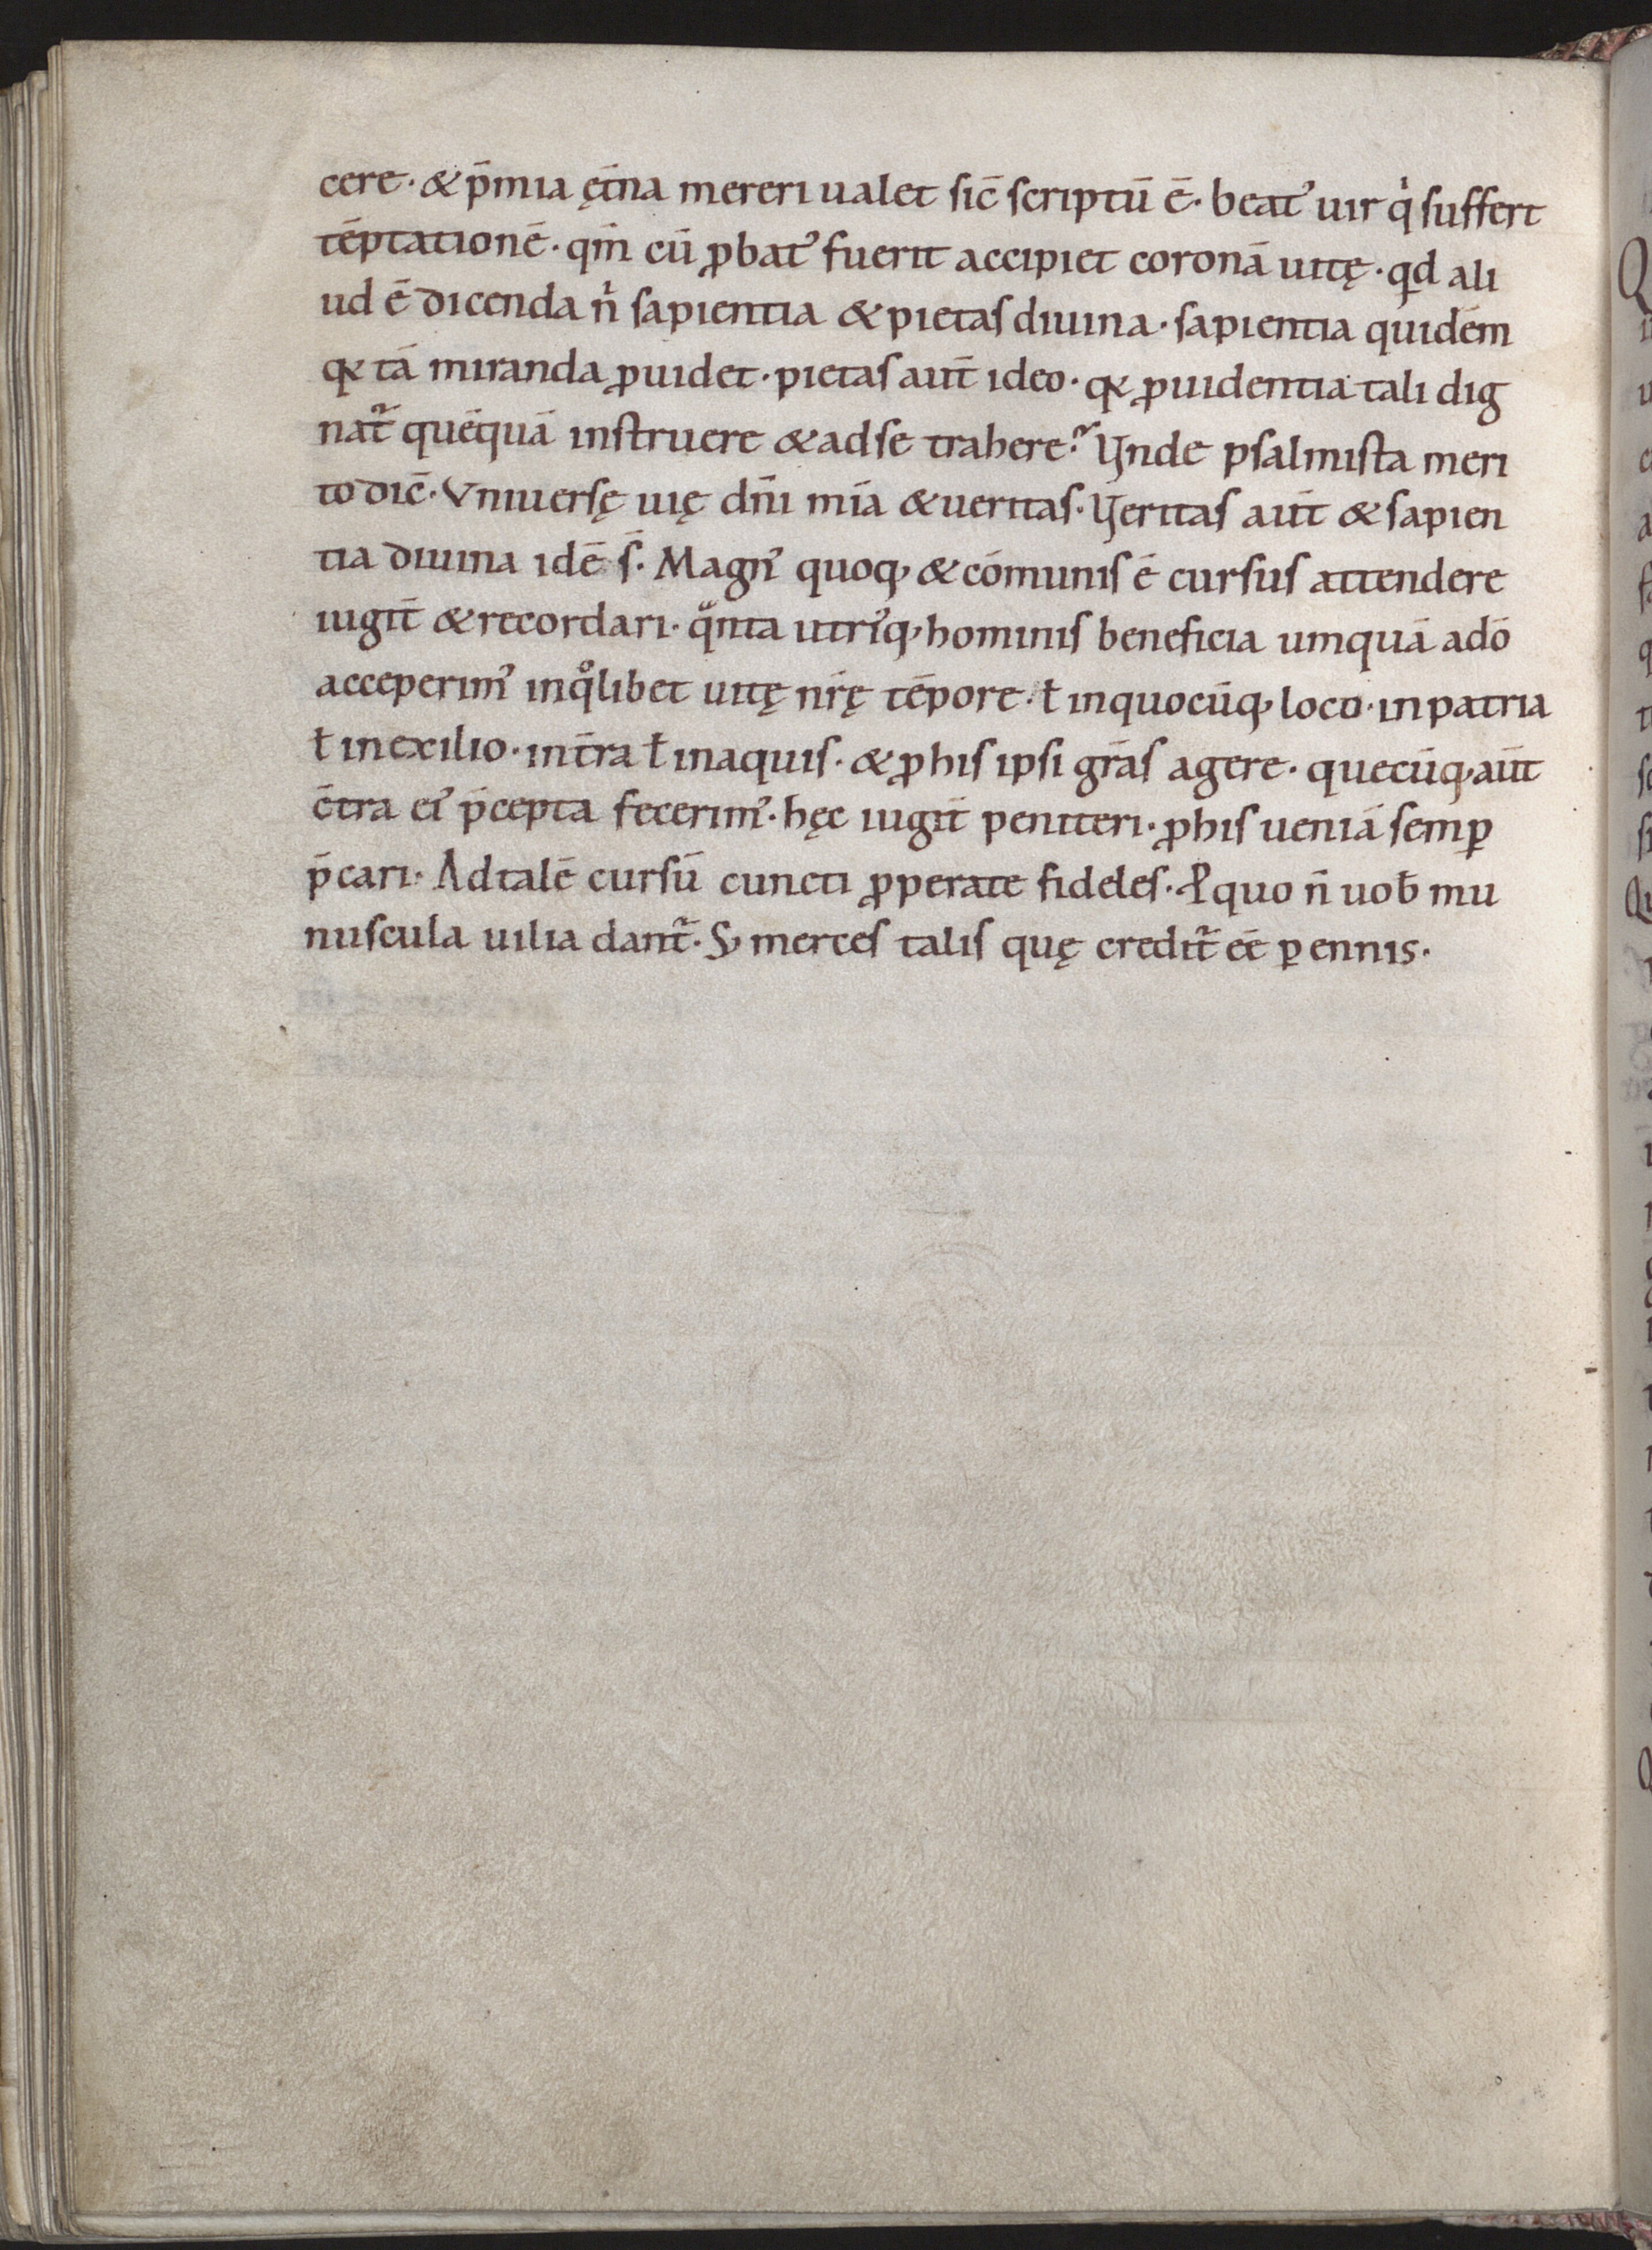 cere· & p̄mia ęt̄na mereri ualet sic̄ scriptū ē· beatꝰ uir qͥ suffert
tēptationē· qm̄ cū ꝓbatꝰ fuerit accipiet coronā uitę· qd̄ ali
ud ē dicenda nͥ sapientia & pietas diuina· sapientia quidēm
qꝛ tā miranda ꝓuidet· pietas aut̄ ideo· qꝛ ꝓuidentia tali dig
nat᷑ quēquā instruere & ad se trahere? Vnde psalmista meri
to dic̄· Vniuersę uię dn̄i mīa & ueritas· Veritas aut̄ & sapien
tia diuina idē s̄· Magnꝰ quoq, & cōmunis ē cursus attendere
iugit̄ & recordari· qͣnta utriꝰq, hominis beneficia umquā a dō
acceperimꝰ in qͦlibet uitę nr̄ę tēpore· ł in quocūq, loco· in patria
ł in exilio· in t̄ra ł in aquis· & ꝓ his ipsi gr̄as agere· quecūq, aūt
c̄tra eiꝰ p̄cepta fecerimꝰ· hęc iugit̄ peniteri· ꝓ his ueniā semꝑ
p̄cari· Ad talē cursū cuncti ꝓperate fideles· Ꝓ quo n̄ uob̄ mu
nuscula uilia dant᷑· S; merces talis quę credit᷑ eē ꝑennis·